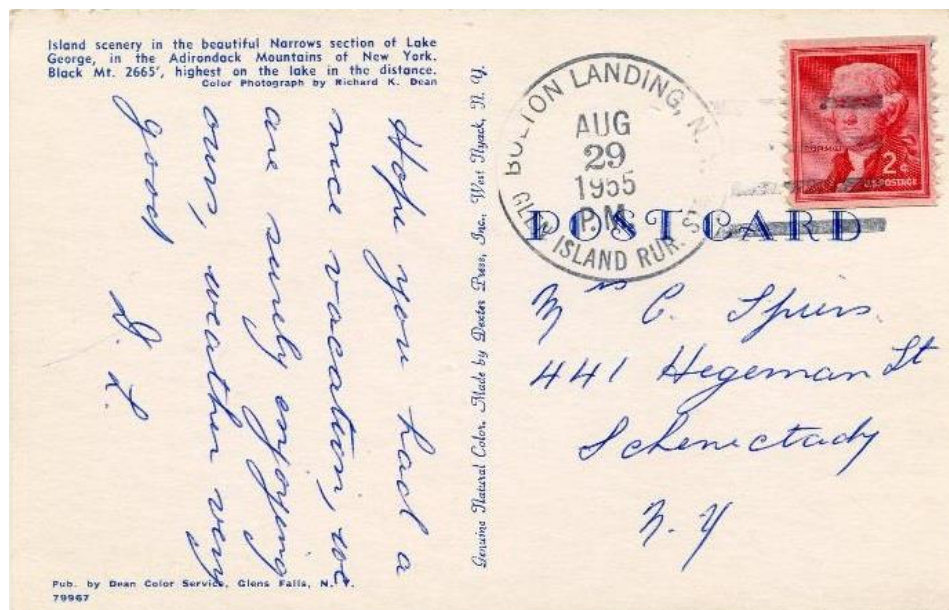 Island scenery in the beautiful Narrows section of Lake
George, in the Adirondack Mountains of New York.
Black Mt. 2665', highest on the lake in the distance.
Color Photograph by Richard K. Dean
Hope you had a
nice vacation, we
are surely enjoying
ours, weather very
good
D. L.
Pub. by Dean Color Service, Glens Falls, N. Y.
79967
Genuine Natural Color. Made by Dexter Press, Inc., West Nyack, N. Y.
BOLTON LANDING, N.
AUG
29
1955
P.M.
GLEN ISLAND RUR. S
2¢
U.S. POSTAGE
POST CARD
Mrs C. Spiers
441 Hegeman St
Schenectady
N. Y